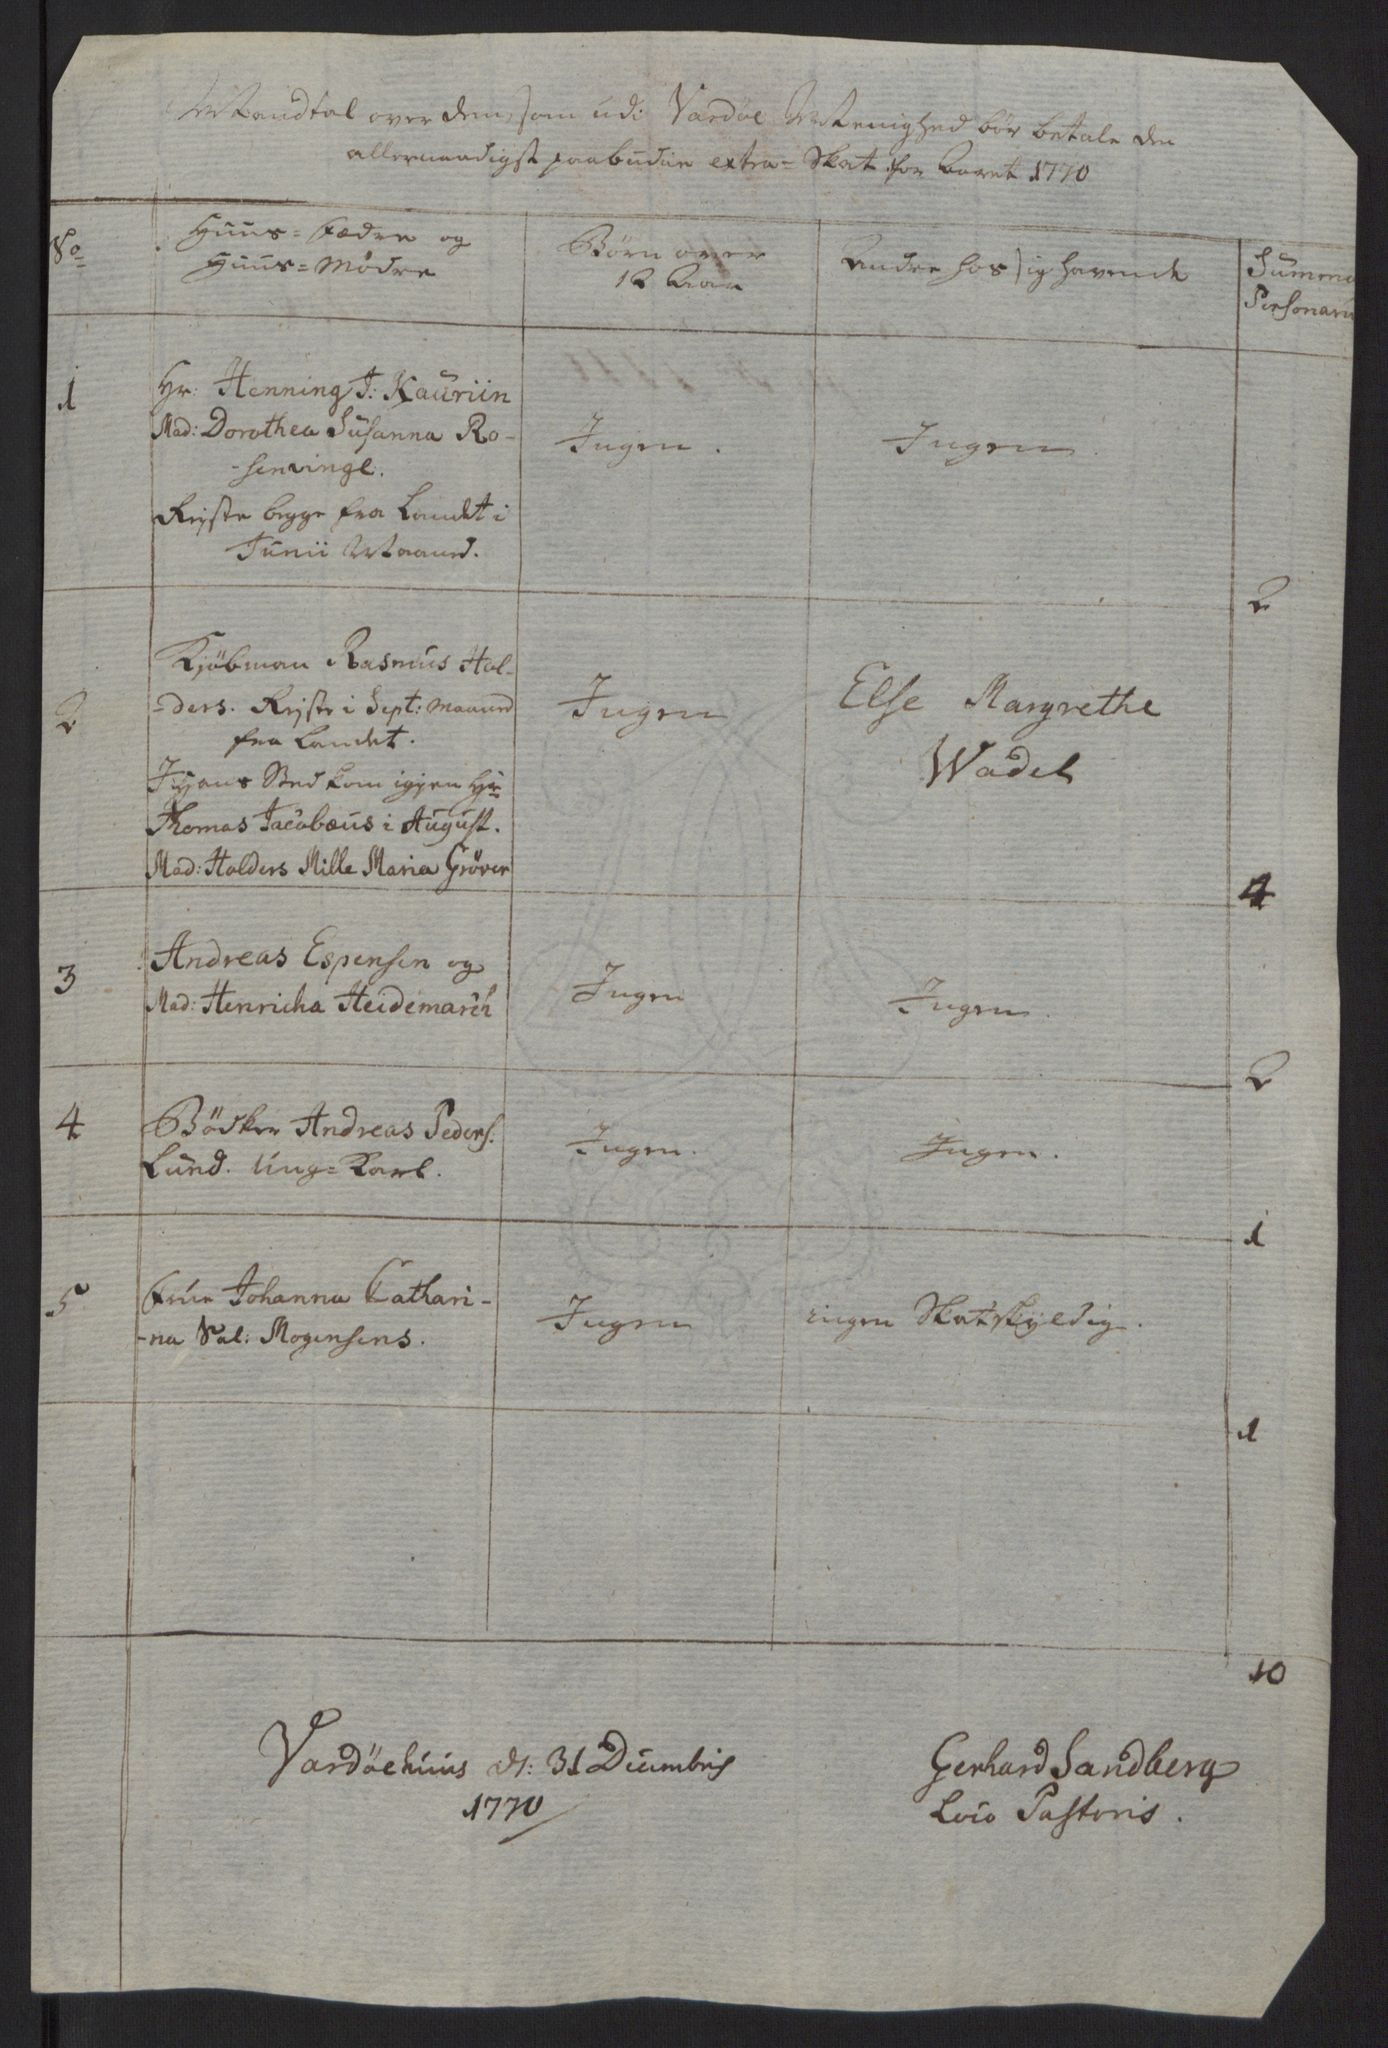 Mandtal over dem som udi Vardøe Menighed bør betale den
allernaadigst paabudne extra- Skat for Aaret 1770
No
Huus-Fædre og
Huus-Mödre
Börn over
12 Aar
Andre hos sig havende
Summa
Personarū
1
Hr: Henning J: Kauriin
Mad: Dorothea Susanna Ro-
-senvinge.
Rejste begge fra Landet i
Junii Maaned.
Ingen.
Ingen.
2
2
Kjöbman Rasmus Hol-
-ders. Rejste i Sept: Maaned
fra Landet.
I Hans Sted kom igjen Hr
Thomas Jacobæus i August.
Mad: Holders Mille Maria Gröver
Ingen
Else Margrethe
Wadel
4
3
Andreas Espensen og
Mad: Henricha Heidemarck
Ingen
Ingen.
2
4
Bödker Andreas Peders.
Lund. Ung-Karl.
Ingen.
Ingen.
1
5
Frue Johanna Cathari-
-na Sal: Mogensens.
Ingen
ingen Skatskyldig.
1
10
Vardöehuus d: 31 Decembris
1770
Gerhard Sandberg
Loco Pastoris.